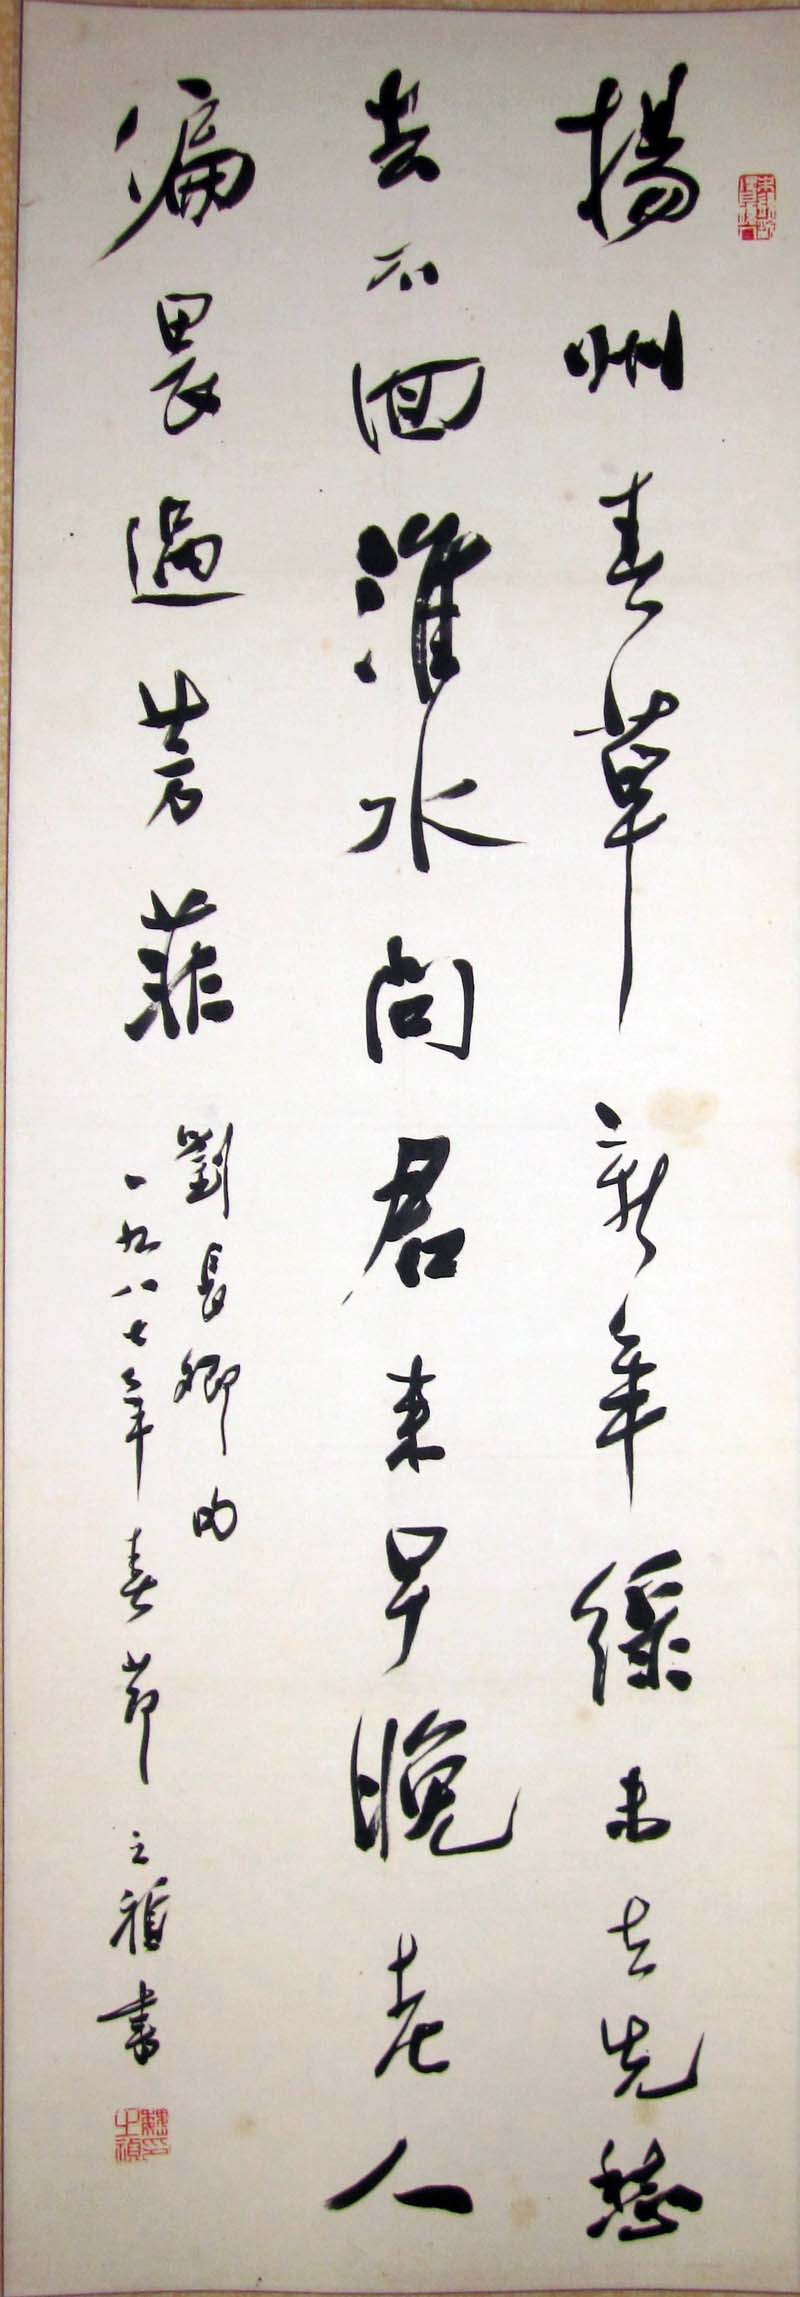 揚州春草新年綠未去先愁
去不回淮水問君来早晚老人
偏畏過芳菲
劉長卿句
一九八七年春節之禎書
魏之禎印